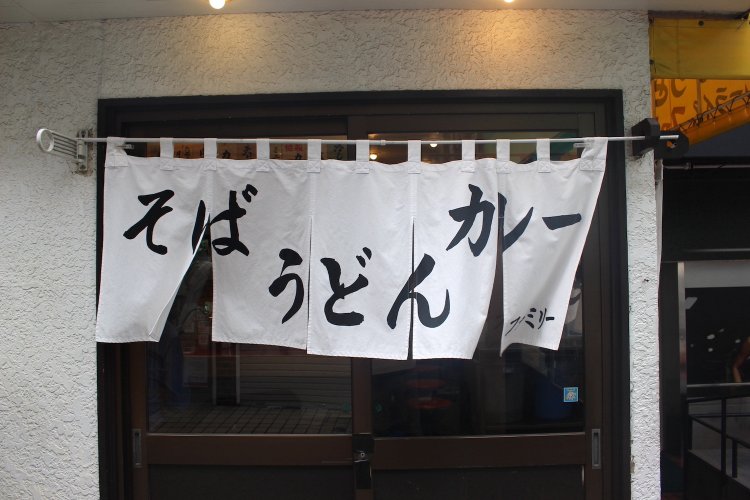 そば
うどん
カレー
ファミリー